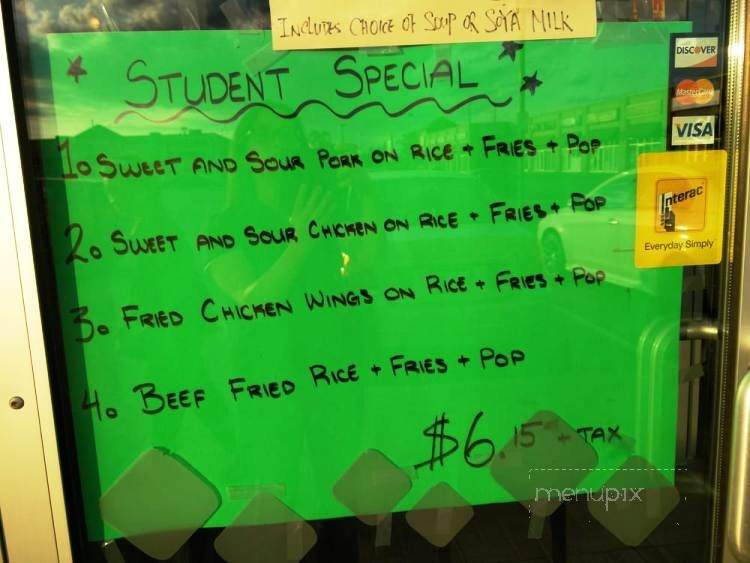 Includes Choice of Soup or Soya Milk
Student Special
1. Sweet and Sour Pork on Rice + Fries + Pop
2. Sweet and Sour Chicken on Rice + Fries + Pop
3. Fried Chicken Wings on Rice + Fries + Pop
4. Beef Fried Rice + Fries + Pop
$6.15 + Tax
DISCOVER
MasterCard
VISA
Interac
Everyday Simply
menupix